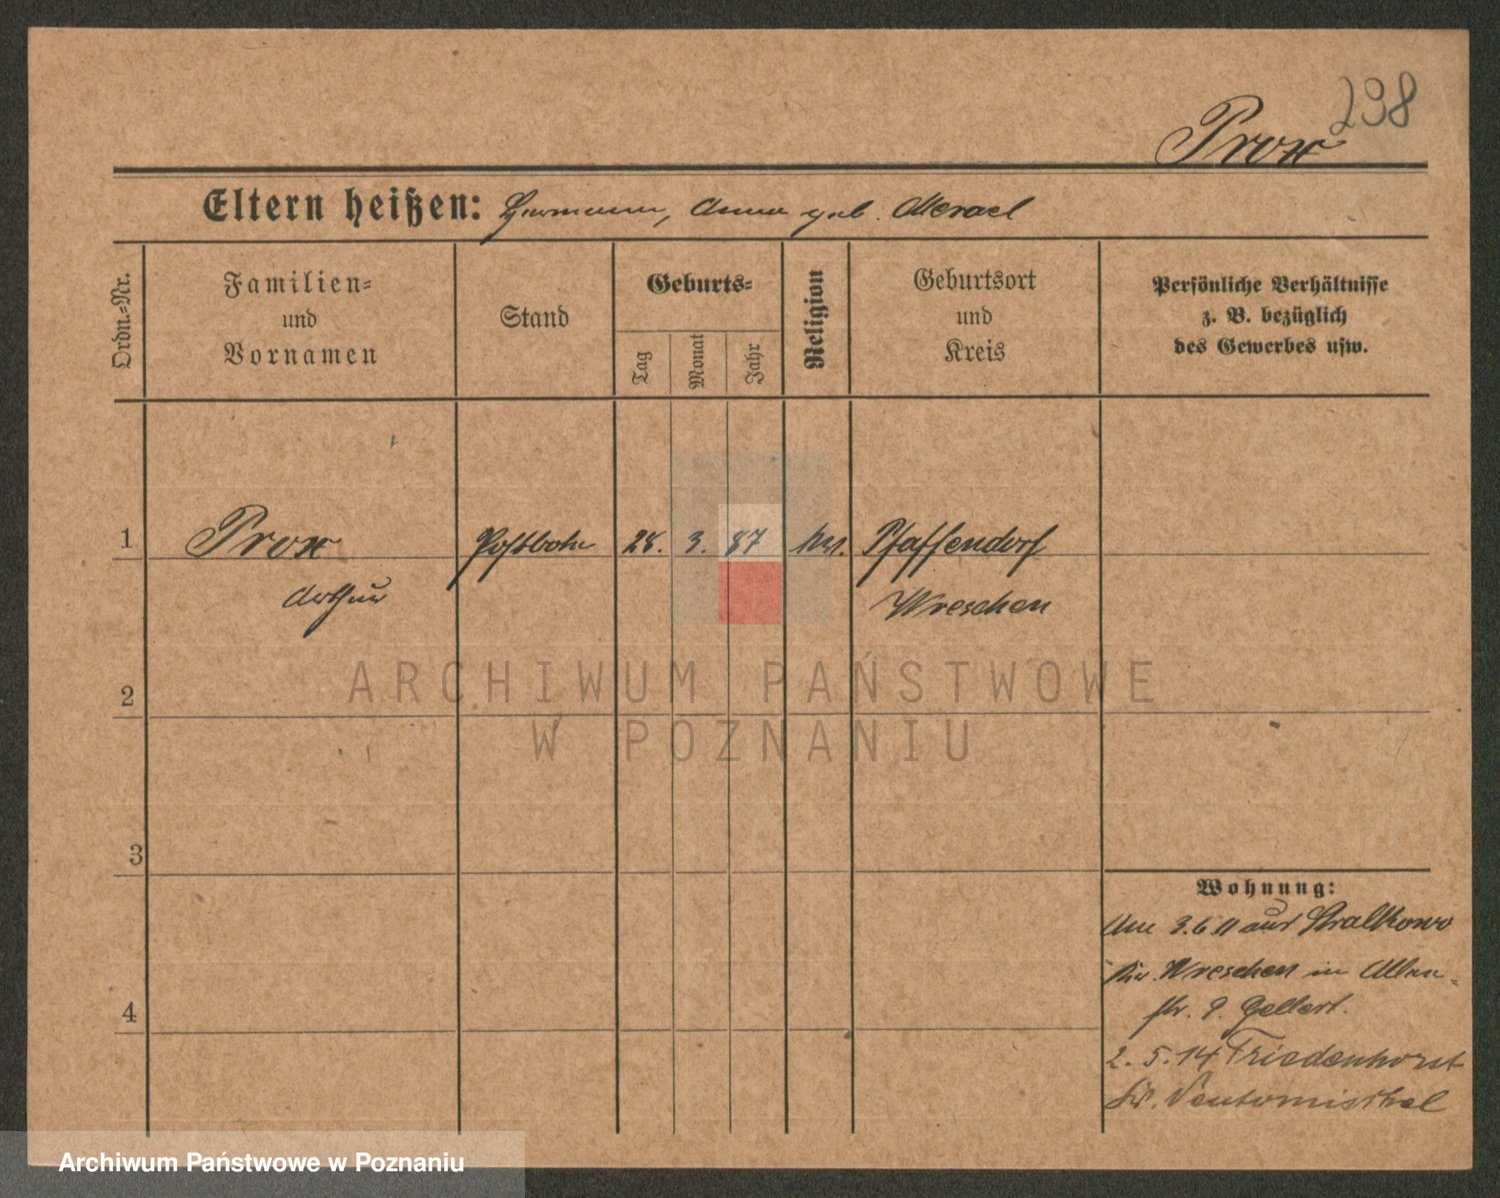 298
Prox
Eltern heißen: Hermann, Anna geb. Merael
Ordn.-Nr.
Familien-
und
Vornamen
Stand
Geburts-
Tag
Monat
Jahr
Religion
Geburtsort
und
Kreis
Persönliche Verhältnisse
z. B. bezüglich
des Gewerbes usw.
1
Prox
Arthur
Postbote
28.
3.
87
Pfaffendorf
Wreschen
2
ARCHIWUM PAŃSTWOWE
W POZNANIU
3
Wohnung:
Am 3.6.11 aus Stralkowo
Kr. Wreschen in
str. 9. Gellert.
4
2. 5. 14 Friedenhorst
Kr. Neutomischel
Archiwum Państwowe w Poznaniu